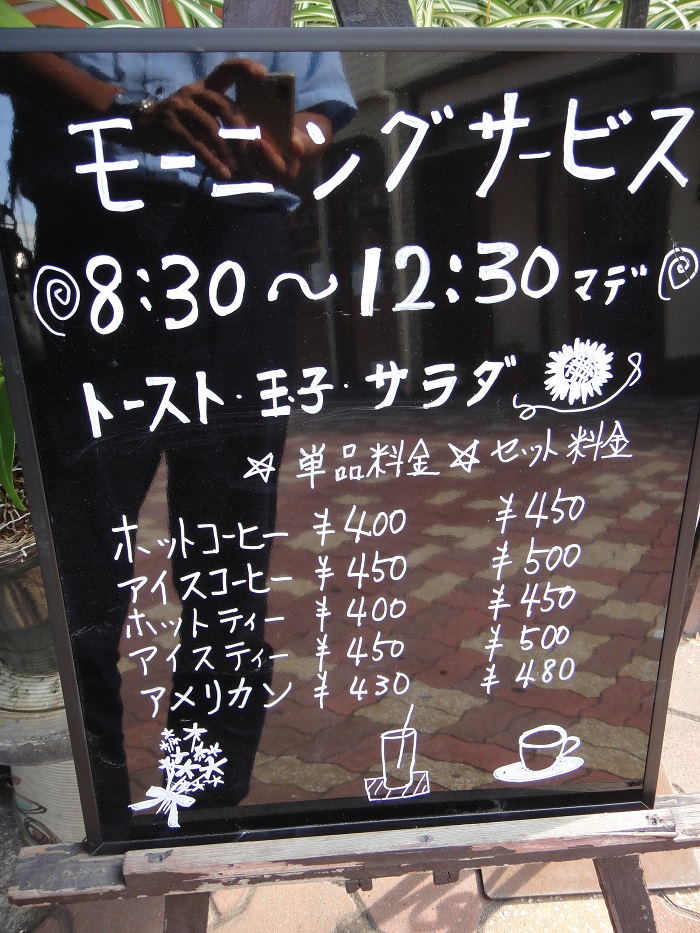 モーニングサービス
8:30〜12:30マデ
トースト・玉子・サラダ
☆単品料金☆セット料金
ホットコーヒー ¥400 ¥450
アイスコーヒー ¥450 ¥500
ホットティー ¥400 ¥450
アイスティー ¥450 ¥500
アメリカン ¥430 ¥480